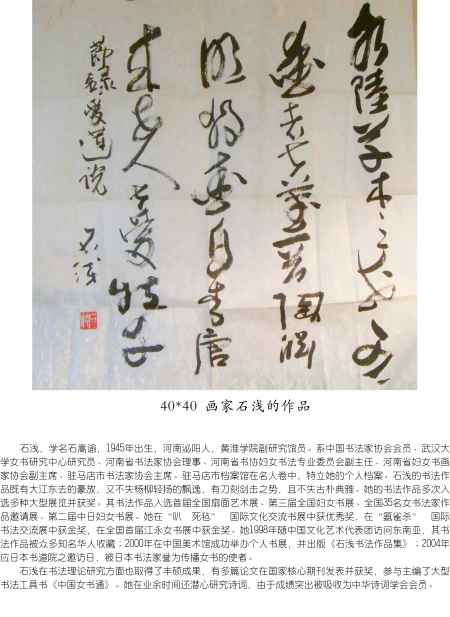 水陸草木之花可
愛者甚蕃晉陶淵
明獨愛自李唐
來世人甚愛牡丹
節録愛蓮说 石浅
40*40 画家石浅的作品
石浅，学名石嵩谕，1945年出生，河南泌阳人，黄淮学院副研究馆员。系中国书法家协会会员、武汉大
学女书研究中心研究员、河南省书法家协会理事、河南省书协妇女书法专业委员会副主任、河南省妇女书画
家协会副主席、驻马店市书法家协会主席。驻马店市档案馆在名人卷中，特立她的个人档案。石浅的书法作
品既有大江东去的豪放，又不失杨柳轻扬的飘逸，有刀刻剑击之势，且不失古朴典雅。她的书法作品多次入
选多种大型展览并获奖。其书法作品入选首届全国扇面艺术展、第三届全国妇女书展、全国35名女书法家作
品邀请展、第二届中日妇女书展。她在“叭 死毡” 国际文化交流书展中获优秀奖，在“氨雀杀” 国际
书法交流展中获金奖，在全国首届江永女书展中获金奖。她1998年随中国女书文化艺术代表团访问东南亚，其书
法作品被众多知名华人收藏；2000年在中国美术馆成功举办个人书展，并出版《石浅书法作品集》；2004年
应日本书道院之邀访日，被日本书法家誉为传播女书的使者。
石浅在书法理论研究方面也取得了丰硕成果，有多篇论文在国家核心期刊发表并获奖，参与主编了大型
书法工具书《中国女书通》。她在业余时间还潜心研究诗词，由于成绩突出被吸收为中华诗词学会会员。